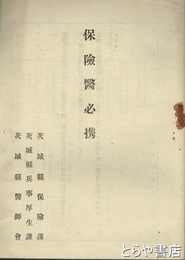 保險醫必携
茨城縣保險課
茨城縣兵事厚生課
茨城縣醫師會
とらや書房